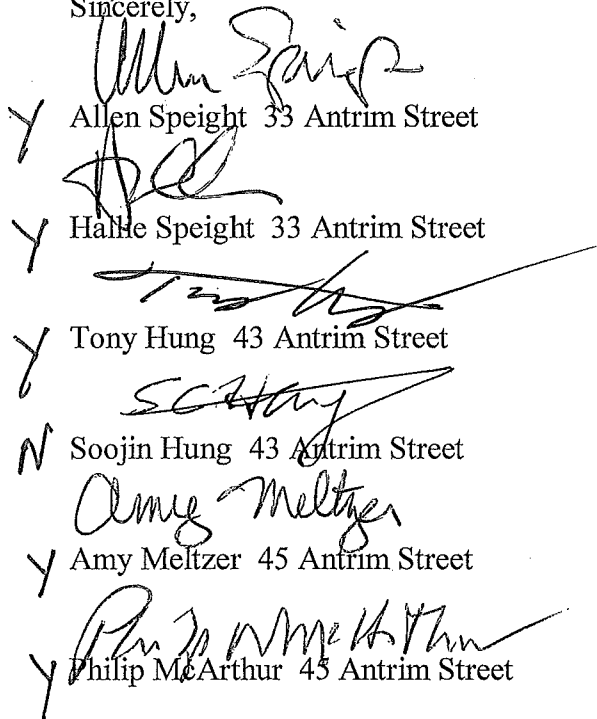 Sincerely,
Allen Speight
Y Allen Speight 33 Antrim Street
Y Hallie Speight 33 Antrim Street
Tony Hung
Y Tony Hung 43 Antrim Street
SC Hung
N Soojin Hung 43 Antrim Street
Amy Meltzer
Y Amy Meltzer 45 Antrim Street
Philip McArthur
Y Philip McArthur 45 Antrim Street